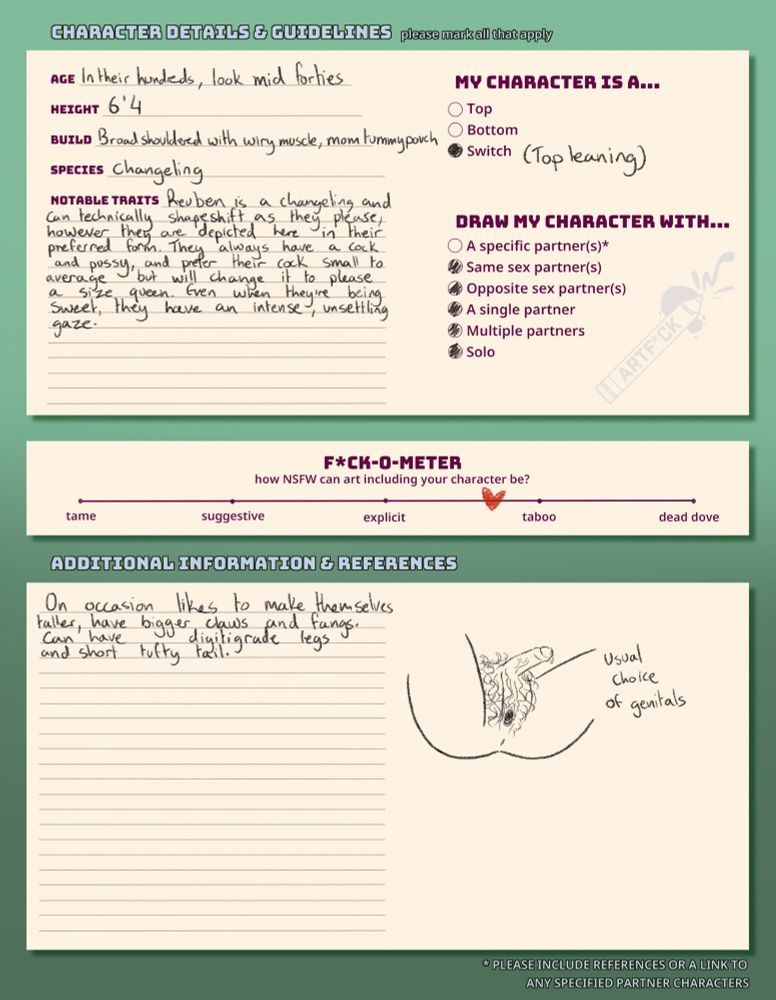 CHARACTER DETAILS & GUIDELINES please mark all that apply
AGE In their hundreds, look mid forties
HEIGHT 6'4
BUILD Broad shouldered with wiry muscle, mom tummy pouch
SPECIES Changeling
NOTABLE TRAITS Reuben is a changeling and
can technically shapeshift as they please,
however they are depicted here in their
preferred form. They always have a cock
and pussy, and prefer their cock small to
average, but will change it to please
a size queen. Even when they're being
sweet, they have an intense, unsettling
gaze.
MY CHARACTER IS A...
Top
Bottom
Switch (Top leaning)
DRAW MY CHARACTER WITH...
A specific partner(s)*
Same sex partner(s)
Opposite sex partner(s)
A single partner
Multiple partners
Solo
ARTF*CK
F*CK-O-METER
how NSFW can art including your character be?
tame suggestive explicit taboo dead dove
ADDITIONAL INFORMATION & REFERENCES
On occasion likes to make themselves
taller, have bigger claws and fangs.
Can have digitigrade legs
and short tufty tail.
usual
choice
of genitals
* PLEASE INCLUDE REFERENCES OR A LINK TO
ANY SPECIFIED PARTNER CHARACTERS